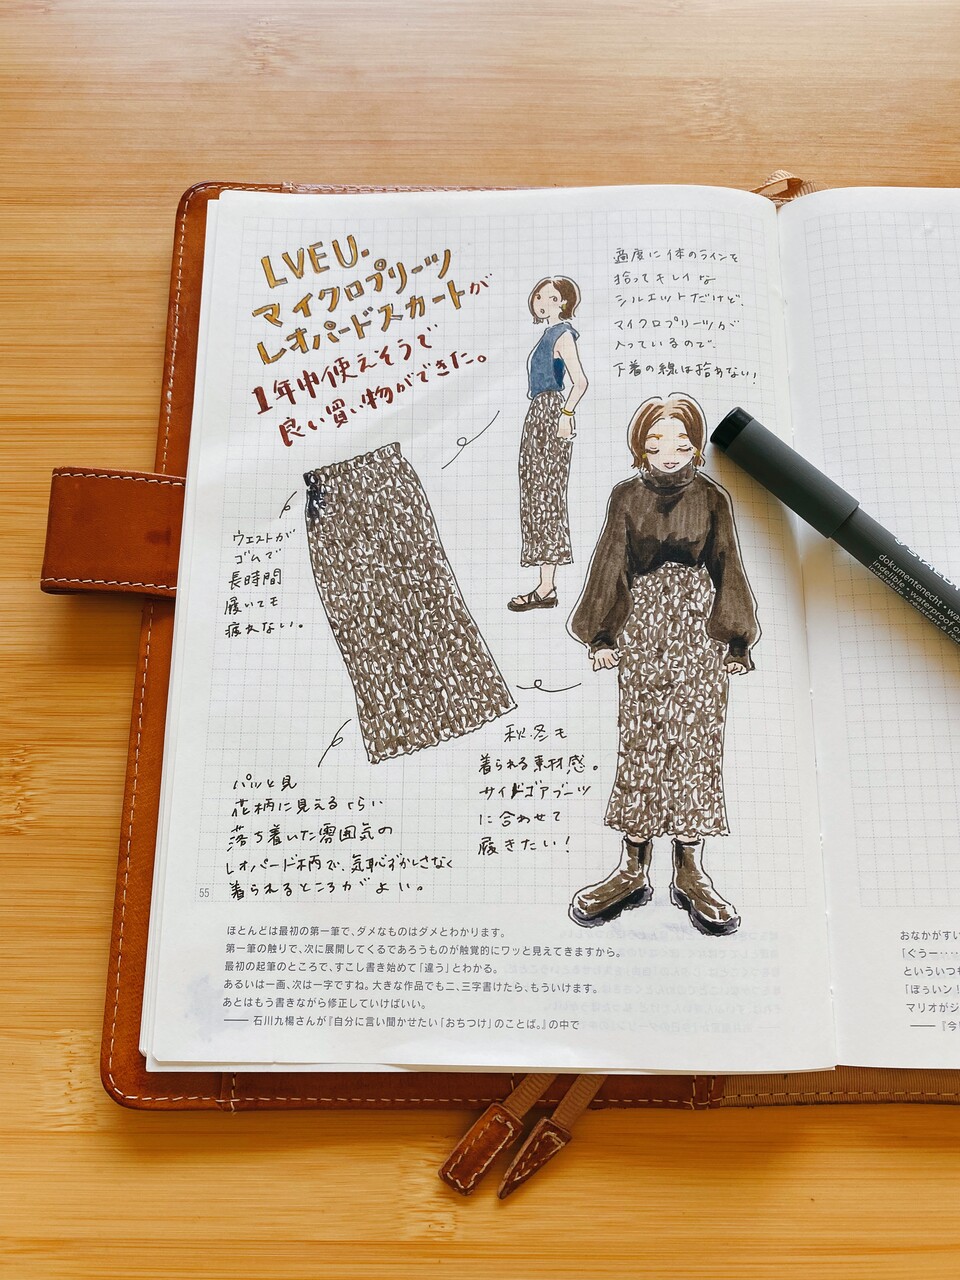 LVEU.
マイクロプリーツ
レオパードスカートが
1年中使えそうで
良い買い物ができた。
適度に体のラインを
拾ってキレイな
シルエットだけど、
マイクロプリーツが
入っているので、
下着の線は拾わない!
ウェストが
ゴムで
長時間
履いても
疲れない。
秋・冬も
着られる素材感。
サイドゴアブーツ
に合わせて
履きたい!
パッと見
花柄に見えるくらい
落ち着いた雰囲気の
レオパード柄で、気恥ずかしさなく
着られるところがよい。
55
ほとんどは最初の第一筆で、ダメなものはダメとわかります。
第一筆の触りで、次に展開してくるであろうものが触覚的にワッと見えてきますから。
最初の起筆のところで、すこし書き始めて「違う」とわかる。
あるいは一画、次は一字ですね。大きな作品でも二、三字書けたら、もういけます。
あとはもう書きながら修正していけばいい。
── 石川九楊さんが『自分に言い聞かせたい「おちつけ」のことば。』の中で
おなかがすい
「ぐうー‥‥
といういつも
「ぽぅいン!
マリオがジ
── 『今
dokumentenecht • wa
indelible • waterproof o
indélébile • résistant à l'ea